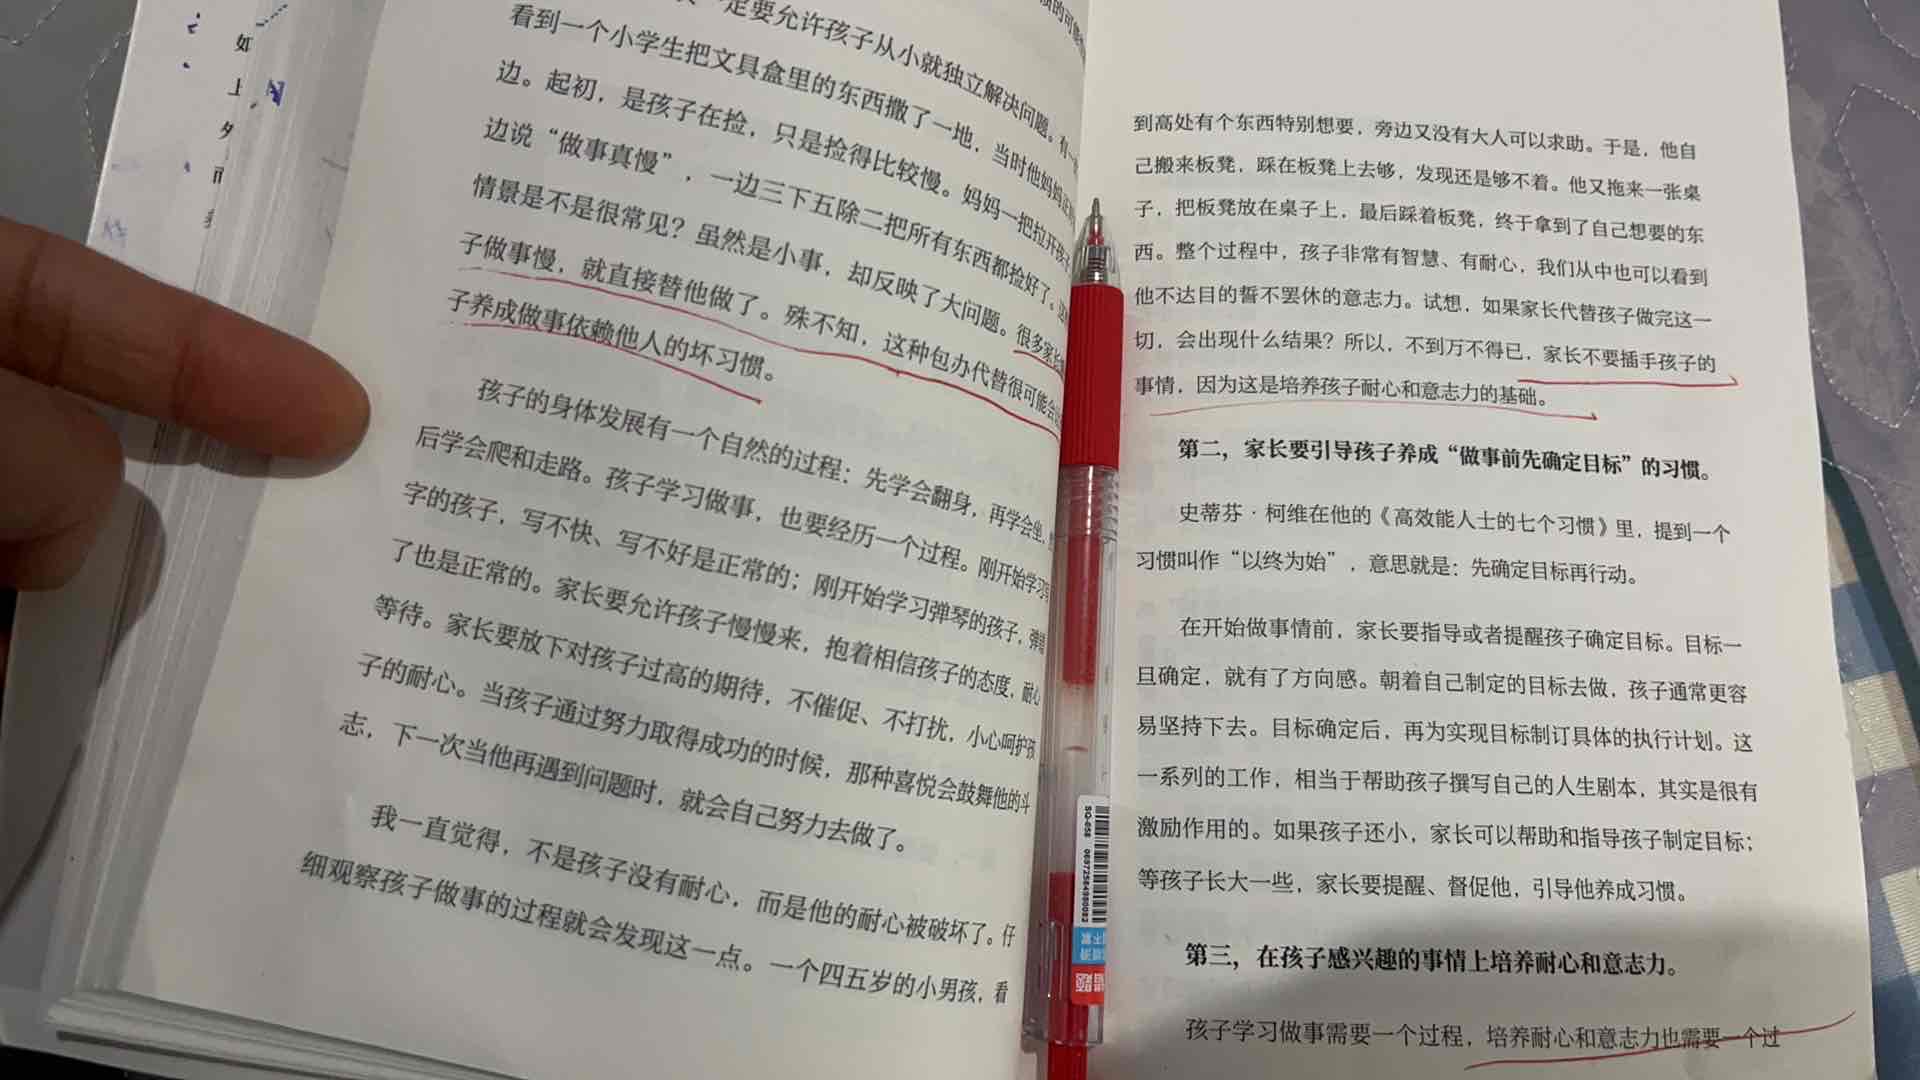 定要允许孩子从小就独立解决问题。有一
看到一个小学生把文具盒里的东西撒了一地，当时他妈妈正
边。起初，是孩子在捡，只是捡得比较慢。妈妈一把拉开孩
边说“做事真慢”，一边三下五除二把所有东西都捡好了。这
情景是不是很常见？虽然是小事，却反映了大问题。很多家长
子做事慢，就直接替他做了。殊不知，这种包办代替很可能会
子养成做事依赖他人的坏习惯。
孩子的身体发展有一个自然的过程：先学会翻身，再学会坐，
后学会爬和走路。孩子学习做事，也要经历一个过程。刚开始学习写
字的孩子，写不快、写不好是正常的；刚开始学习弹琴的孩子，弹错
了也是正常的。家长要允许孩子慢慢来，抱着相信孩子的态度，耐心
等待。家长要放下对孩子过高的期待，不催促、不打扰，小心呵护孩
子的耐心。当孩子通过努力取得成功的时候，那种喜悦会鼓舞他的斗
志，下一次当他再遇到问题时，就会自己努力去做了。
我一直觉得，不是孩子没有耐心，而是他的耐心被破坏了。仔
细观察孩子做事的过程就会发现这一点。一个四五岁的小男孩，看
到高处有个东西特别想要，旁边又没有大人可以求助。于是，他自
己搬来板凳，踩在板凳上去够，发现还是够不着。他又拖来一张桌
子，把板凳放在桌子上，最后踩着板凳，终于拿到了自己想要的东
西。整个过程中，孩子非常有智慧、有耐心，我们从中也可以看到
他不达目的誓不罢休的意志力。试想，如果家长代替孩子做完这一
切，会出现什么结果？所以，不到万不得已，家长不要插手孩子的
事情，因为这是培养孩子耐心和意志力的基础。
第二，家长要引导孩子养成“做事前先确定目标”的习惯。
史蒂芬·柯维在他的《高效能人士的七个习惯》里，提到一个
习惯叫作“以终为始”，意思就是：先确定目标再行动。
在开始做事情前，家长要指导或者提醒孩子确定目标。目标一
旦确定，就有了方向感。朝着自己制定的目标去做，孩子通常更容
易坚持下去。目标确定后，再为实现目标制订具体的执行计划。这
一系列的工作，相当于帮助孩子撰写自己的人生剧本，其实是很有
激励作用的。如果孩子还小，家长可以帮助和指导孩子制定目标；
等孩子长大一些，家长要提醒、督促他，引导他养成习惯。
第三，在孩子感兴趣的事情上培养耐心和意志力。
孩子学习做事需要一个过程，培养耐心和意志力也需要一个过
如
上
外
而
SG-058